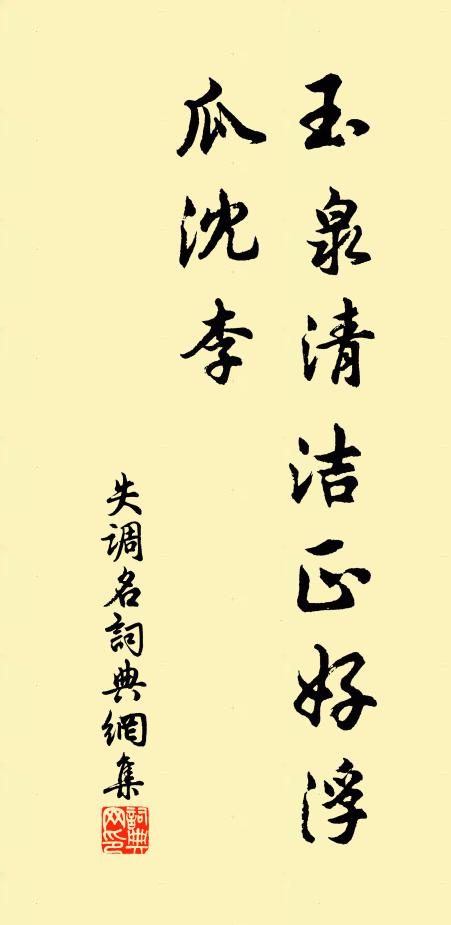 玉泉清洁正好浮
瓜沈李
失调名詞典網集
詞典网印